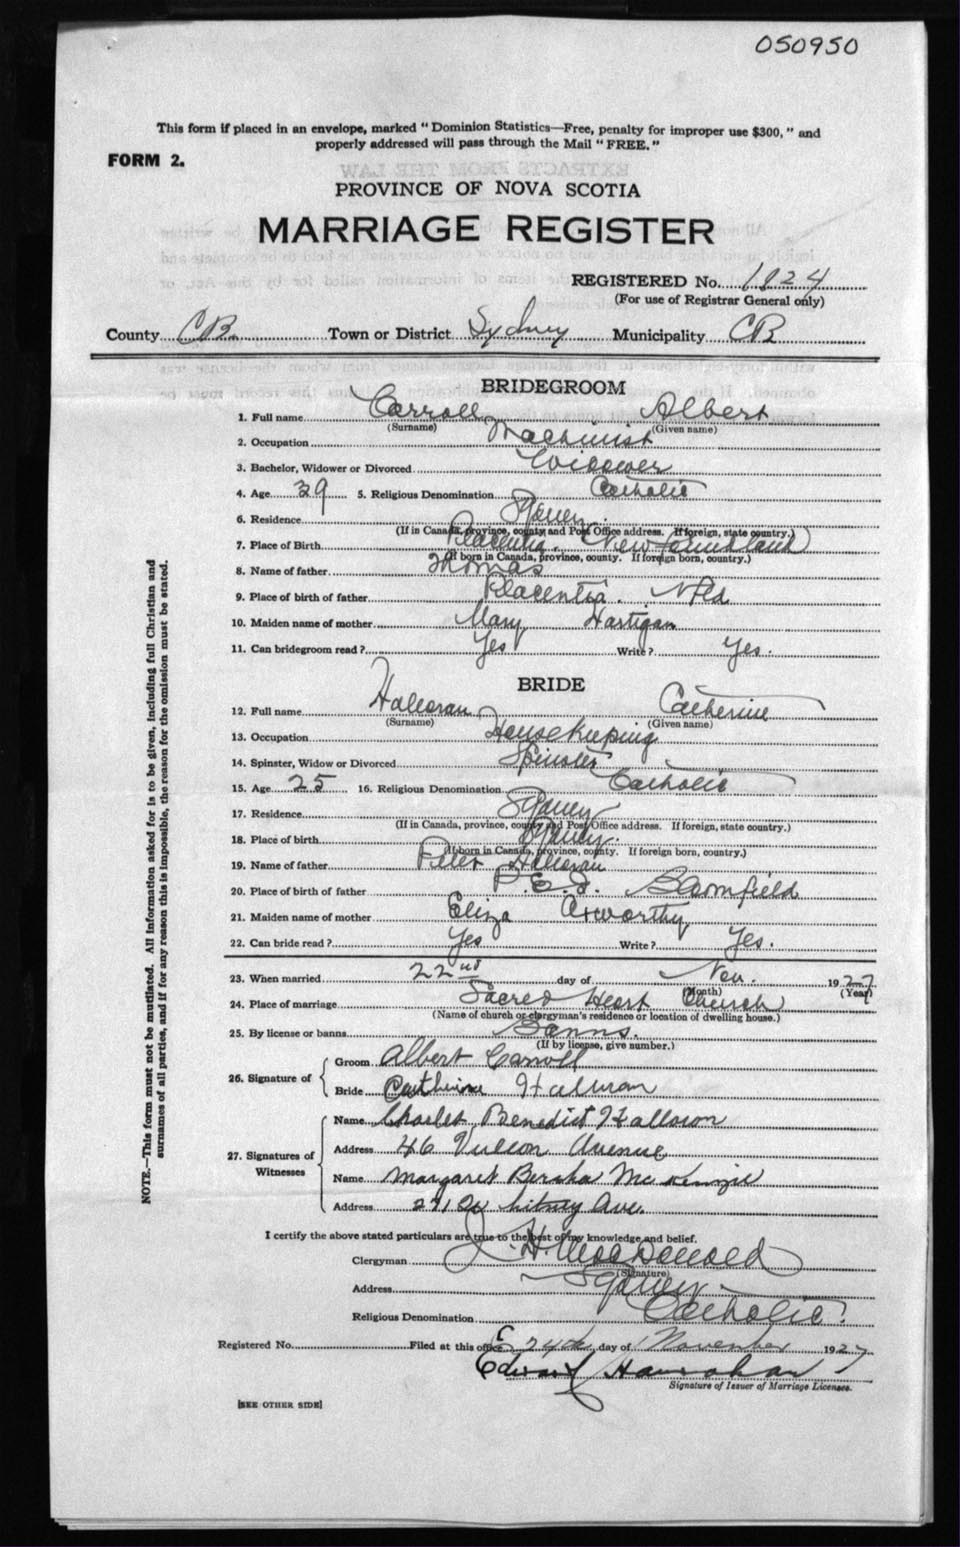 050950
This form if placed in an envelope, marked "Dominion Statistics—Free, penalty for improper use $300," and
properly addressed will pass through the Mail "FREE."
FORM 2.
PROVINCE OF NOVA SCOTIA
MARRIAGE REGISTER
REGISTERED No. 1924
(For use of Registrar General only)
County CB Town or District Sydney Municipality CB
BRIDEGROOM
1. Full name Carroll Albert
(Surname) (Given name)
2. Occupation Machinist
3. Bachelor, Widower or Divorced Widower
4. Age 39 5. Religious Denomination Catholic
6. Residence Sydney.
(If in Canada, province, county and Post Office address. If foreign, state country.)
7. Place of Birth Placentia. Newfoundland
(If born in Canada, province, county. If foreign born, country.)
8. Name of father Thomas
9. Place of birth of father Placentia. Nfld
10. Maiden name of mother Mary Hartigan
11. Can bridegroom read? Yes Write? Yes.
BRIDE
12. Full name Halloran Catherine
(Surname) (Given name)
13. Occupation Housekeeping
14. Spinster, Widow or Divorced Spinster
15. Age 25 16. Religious Denomination Catholic
17. Residence Sydney
(If in Canada, province, county and Post Office address. If foreign, state country.)
18. Place of birth Sydney.
(If born in Canada, province, county. If foreign born, country.)
19. Name of father Peter Halloran
20. Place of birth of father P.E.I. Bloomfield
21. Maiden name of mother Eliza Axworthy
22. Can bride read? Yes Write? Yes.
23. When married 22nd day of Nov. 1927
(Month) (Year)
24. Place of marriage Sacred Heart Church
(Name of church or clergyman's residence or location of dwelling house.)
25. By license or banns Banns.
(If by license, give number.)
26. Signature of Groom Albert Carroll
Bride Catherine Halloran
27. Signatures of Witnesses Name Charles Benedict Halloran
Address 46 Vulcan Avenue
Name Margaret Bertha McKenzie
Address Whitney Ave.
I certify the above stated particulars are true to the best of my knowledge and belief.
Clergyman J. H. MacDonald
(Signature)
Address Sydney
Religious Denomination Catholic.
Registered No. Filed at this office 24th day of November 1927
Edward Hanrahan
Signature of Issuer of Marriage Licenses.
[SEE OTHER SIDE]
NOTE.—This form must not be mutilated. All information asked for is to be given, including full Christian and
surnames of all parties, and if for any reason this is impossible, the reason for the omission must be stated.